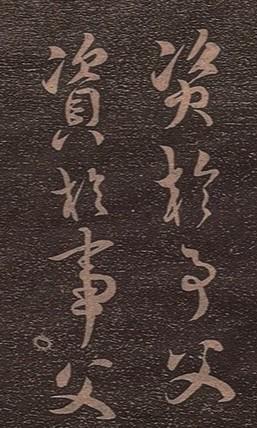 資於事父
資於事父